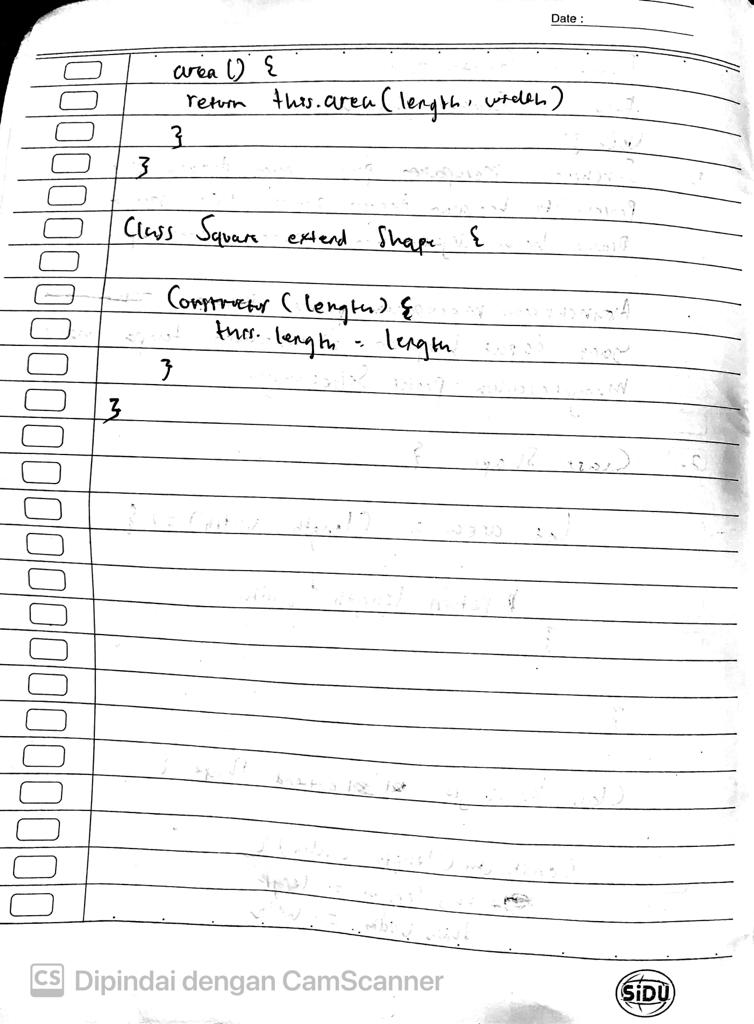 Date :
area () {
return this.area (length, width)
}
}
Class Square extend Shape {
Constructor (length) {
this.length = length
}
}
CS Dipindai dengan CamScanner
SiDU